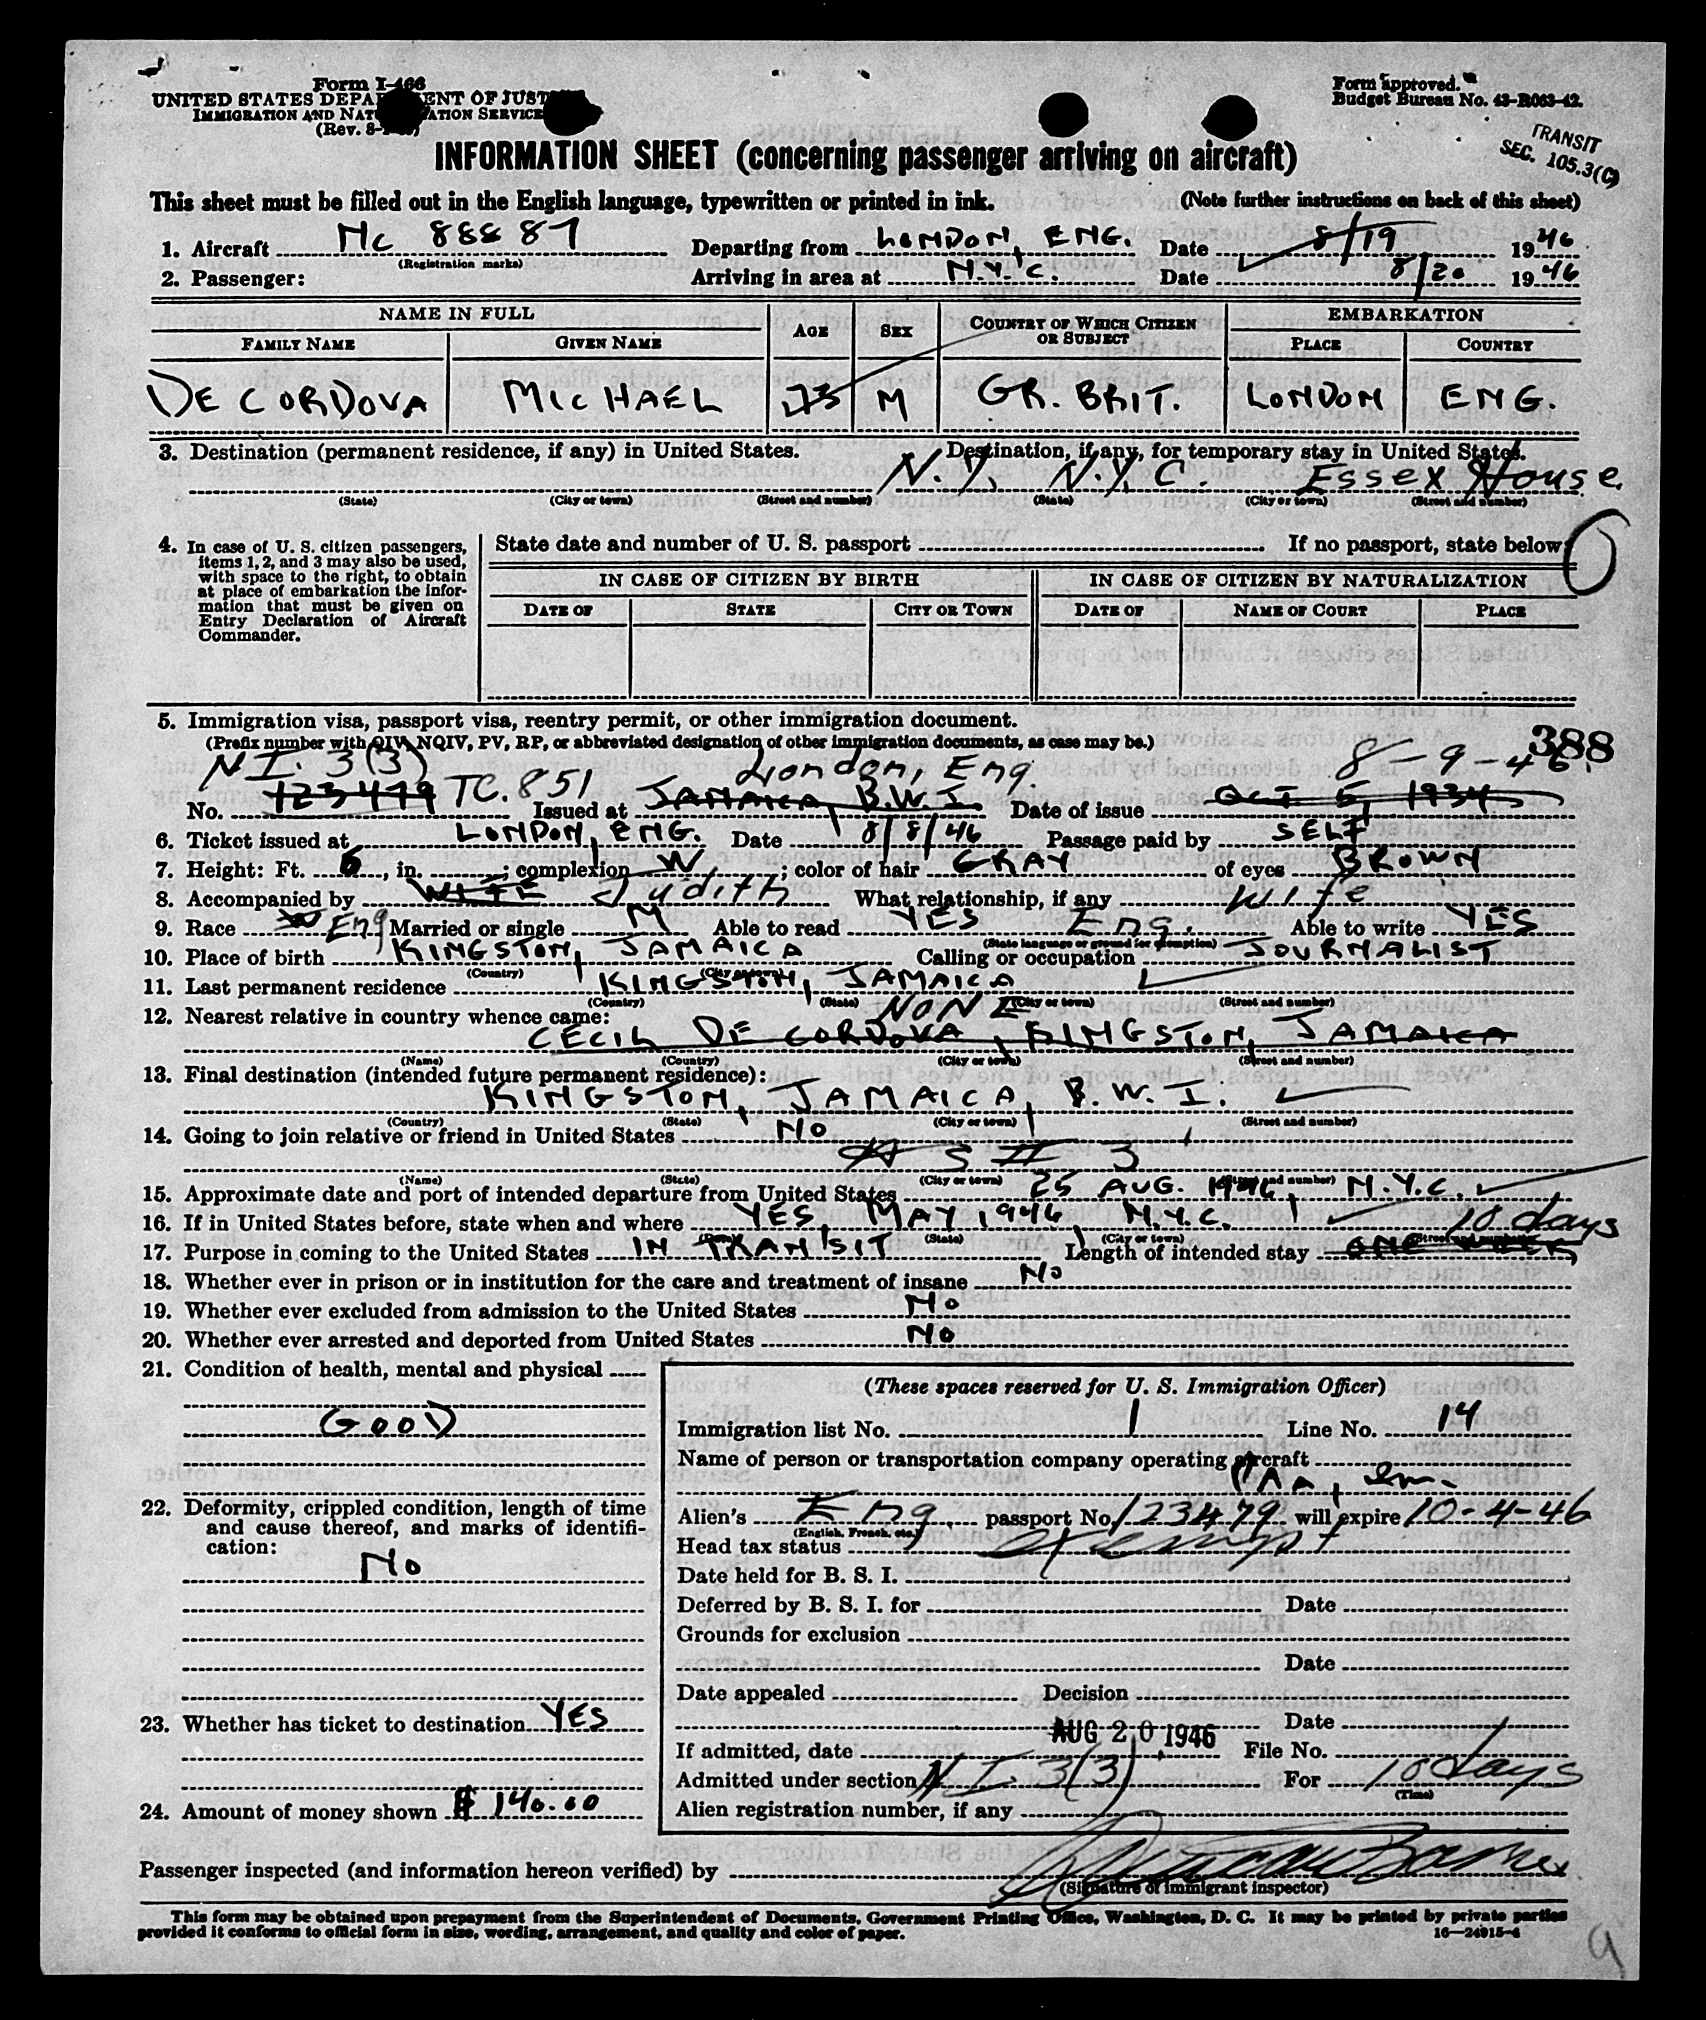 Form I-466
UNITED STATES DEPARTMENT OF JUSTICE
IMMIGRATION AND NATURALIZATION SERVICE
(Rev. 8-
Form approved.
Budget Bureau No. 43-R063-42.
TRANSIT
SEC. 105.3(C)
INFORMATION SHEET (concerning passenger arriving on aircraft)
This sheet must be filled out in the English language, typewritten or printed in ink. (Note further instructions on back of this sheet)
1. Aircraft NC 88887 Departing from LONDON, ENG. Date 8/19 1946
(Registration marks)
2. Passenger: Arriving in area at N.Y.C. Date 8/20 1946
NAME IN FULL AGE SEX COUNTRY OF WHICH CITIZEN OR SUBJECT EMBARKATION
FAMILY NAME GIVEN NAME PLACE COUNTRY
DE CORDOVA MICHAEL M GR. BRIT. LONDON ENG.
3. Destination (permanent residence, if any) in United States. Destination, if any, for temporary stay in United States.
N.Y. N.Y.C. Essex House.
(State) (City or town) (Street and number) (State) (City or town) (Street and number)
4. In case of U. S. citizen passengers,
items 1, 2, and 3 may also be used,
with space to the right, to obtain
at place of embarkation the infor-
mation that must be given on
Entry Declaration of Aircraft
Commander.
State date and number of U. S. passport If no passport, state below:
IN CASE OF CITIZEN BY BIRTH IN CASE OF CITIZEN BY NATURALIZATION
DATE OF STATE CITY OR TOWN DATE OF NAME OF COURT PLACE
5. Immigration visa, passport visa, reentry permit, or other immigration document.
(Prefix number with QIV, NQIV, PV, RP, or abbreviated designation of other immigration documents, as case may be.)
388
N.I. 3(3) London, Eng 8-9-46.
No. 123479 TC. 851 Issued at JAMAICA, B.W.I. Date of issue OCT 5, 1934
6. Ticket issued at LONDON, ENG. Date 8/8/46 Passage paid by SELF
7. Height: Ft. 6, in. ; complexion W ; color of hair GRAY of eyes BROWN
8. Accompanied by WIFE Judith What relationship, if any Wife
9. Race W Eng Married or single M Able to read YES Eng. Able to write YES
(State language or ground for exemption)
10. Place of birth KINGSTON, JAMAICA Calling or occupation JOURNALIST
(Country) (City or town)
11. Last permanent residence KINGSTON, JAMAICA
(Country) (State) (City or town) (Street and number)
12. Nearest relative in country whence came: NONE
CECIL DE CORDOVA, KINGSTON, JAMAICA
(Name) (Country) (City or town) (Street and number)
13. Final destination (intended future permanent residence):
KINGSTON, JAMAICA, B.W.I.
(Country) (State) (City or town) (Street and number)
14. Going to join relative or friend in United States NO
(Name) (State) (City or town) (Street and number)
15. Approximate date and port of intended departure from United States 25 AUG. 1946, N.Y.C.
16. If in United States before, state when and where YES, MAY 1946, N.Y.C.
(State) (City or town) (Street and number)
10 days
17. Purpose in coming to the United States IN TRANSIT Length of intended stay ONE WEEK
18. Whether ever in prison or in institution for the care and treatment of insane NO
19. Whether ever excluded from admission to the United States NO
20. Whether ever arrested and deported from United States NO
21. Condition of health, mental and physical
GOOD
22. Deformity, crippled condition, length of time
and cause thereof, and marks of identifi-
cation:
NO
23. Whether has ticket to destination YES
24. Amount of money shown $ 140.00
(These spaces reserved for U. S. Immigration Officer)
Immigration list No. 1 Line No. 14
Name of person or transportation company operating aircraft
PAA,
Alien's Eng. passport No. 123479 will expire 10-4-46
(English, French, etc.)
Head tax status Exempt
Date held for B. S. I.
Deferred by B. S. I. for Date
Grounds for exclusion
Date
Date appealed Decision
Date
If admitted, date AUG 20 1946 File No.
Admitted under section N.I. 3(3) For 10 days
(Time)
Alien registration number, if any
Passenger inspected (and information hereon verified) by
(Signature of immigrant inspector)
This form may be obtained upon prepayment from the Superintendent of Documents, Government Printing Office, Washington, D. C. It may be printed by private parties
provided it conforms to official form in size, wording, arrangement, and quality and color of paper.
16—24915-4
9